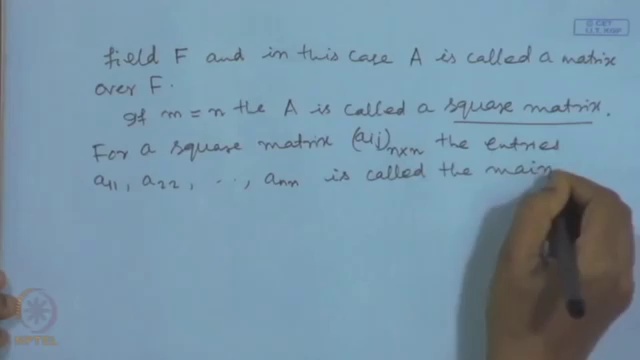 field F and in this case A is called a matrix
over F.
If m = n the A is called a square matrix.
For a square matrix (aij)n×n the entries
a11, a22, ..., ann is called the main
NPTEL